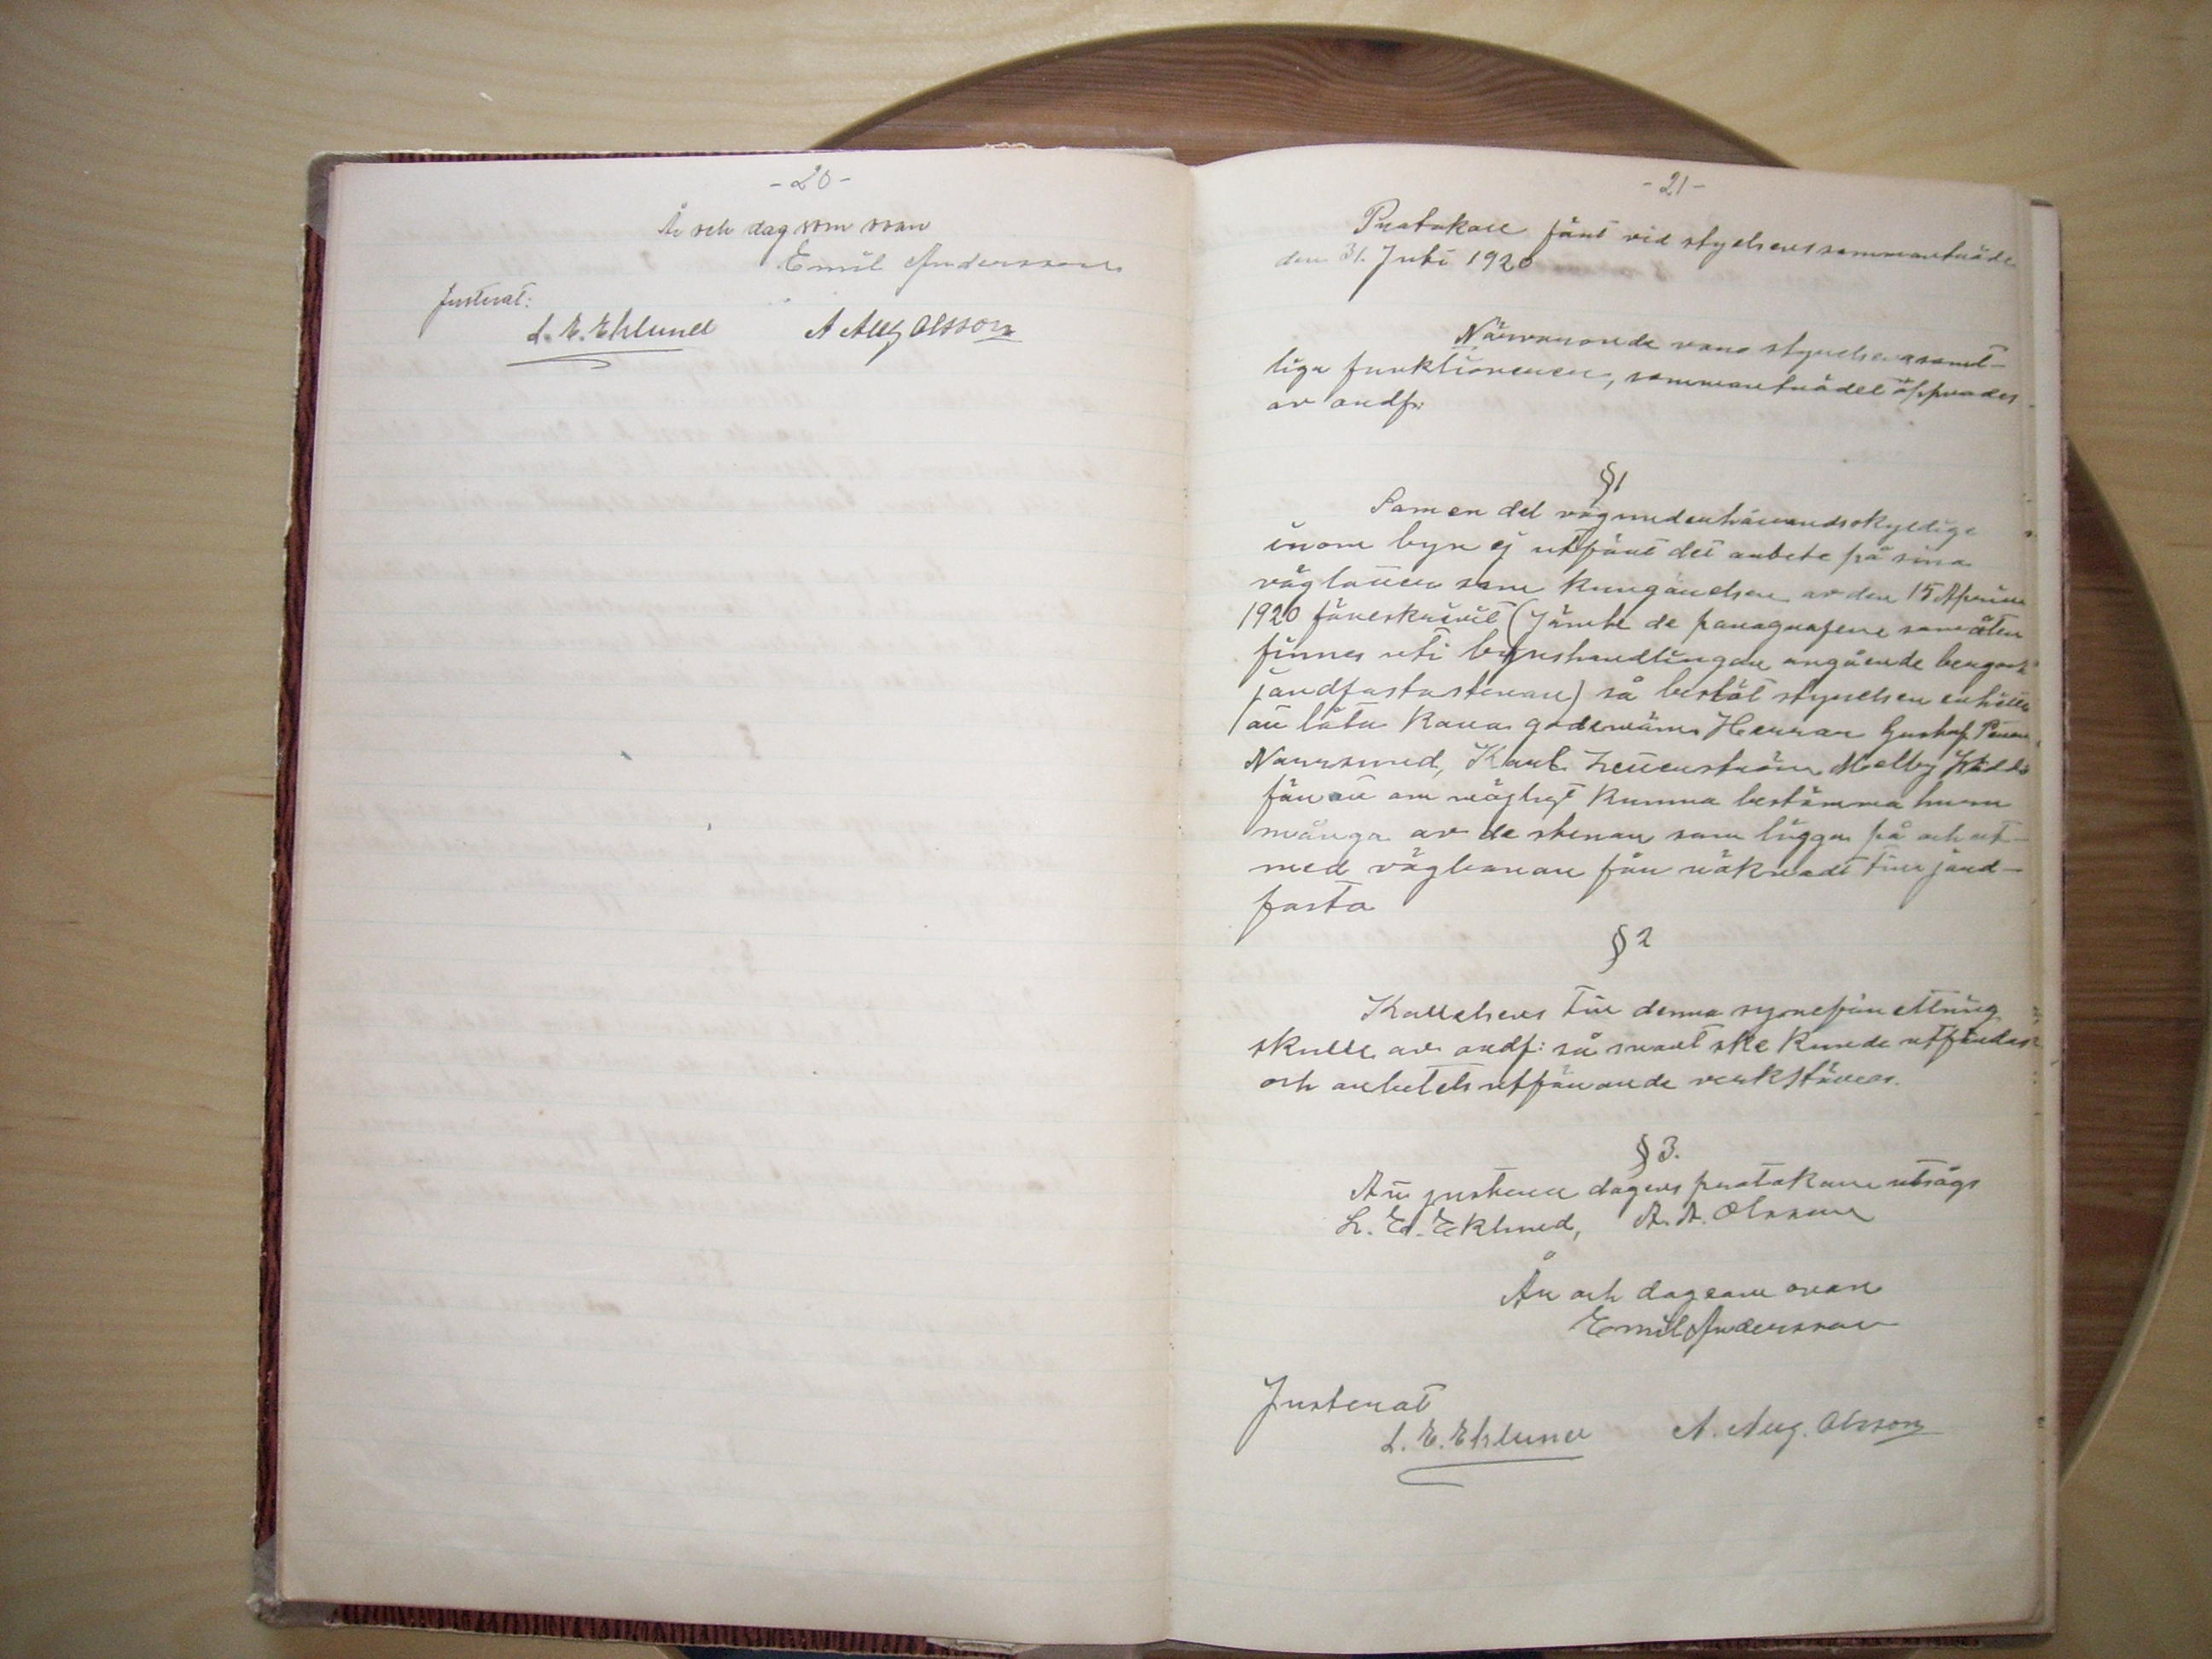 - 20 -
År och dag som ovan
Emil Andersson
Justerat:
L. E. Eklund A Aug Olsson
- 21 -
Protokoll fört vid styelsens sammanträde
den 31. Juli 1920
Närvarande voro styrelsens samt-
liga funktionerer, sammanträdet öppnades
av ordf:
§1
Som en del vägunderhållandsskyldige
inom byn ej utfört det arbete på sina
väglotter som kungörelsen av den 15 Aprill
1920 föreskrivit (Jämte de paragrafer som åter
finnes uti byns handlingar angående berg och
jordfasta stenar) så beslöt styrelsen enhälligt
att låta kalla godemäns Herrar Gustaf
Norrsund, Karl Zetterström Melby
för att om möjligt kunna bestämma huru
många av de stenar som ligga på och ut-
med vägbanan för räknadt till jord-
fasta
§2
Kallelsens till denna syneförrättning
skulle av ordf: så snart ske kunde utfärdas
och arbetets utförande verkställes.
§3.
Att justera dagens protokoll utsågs
L. Ed. Eklund, A. A. Olsson
År och dag som ovan
Emil Andersson
Justerat
L. E. Eklund A. Aug. Olsson